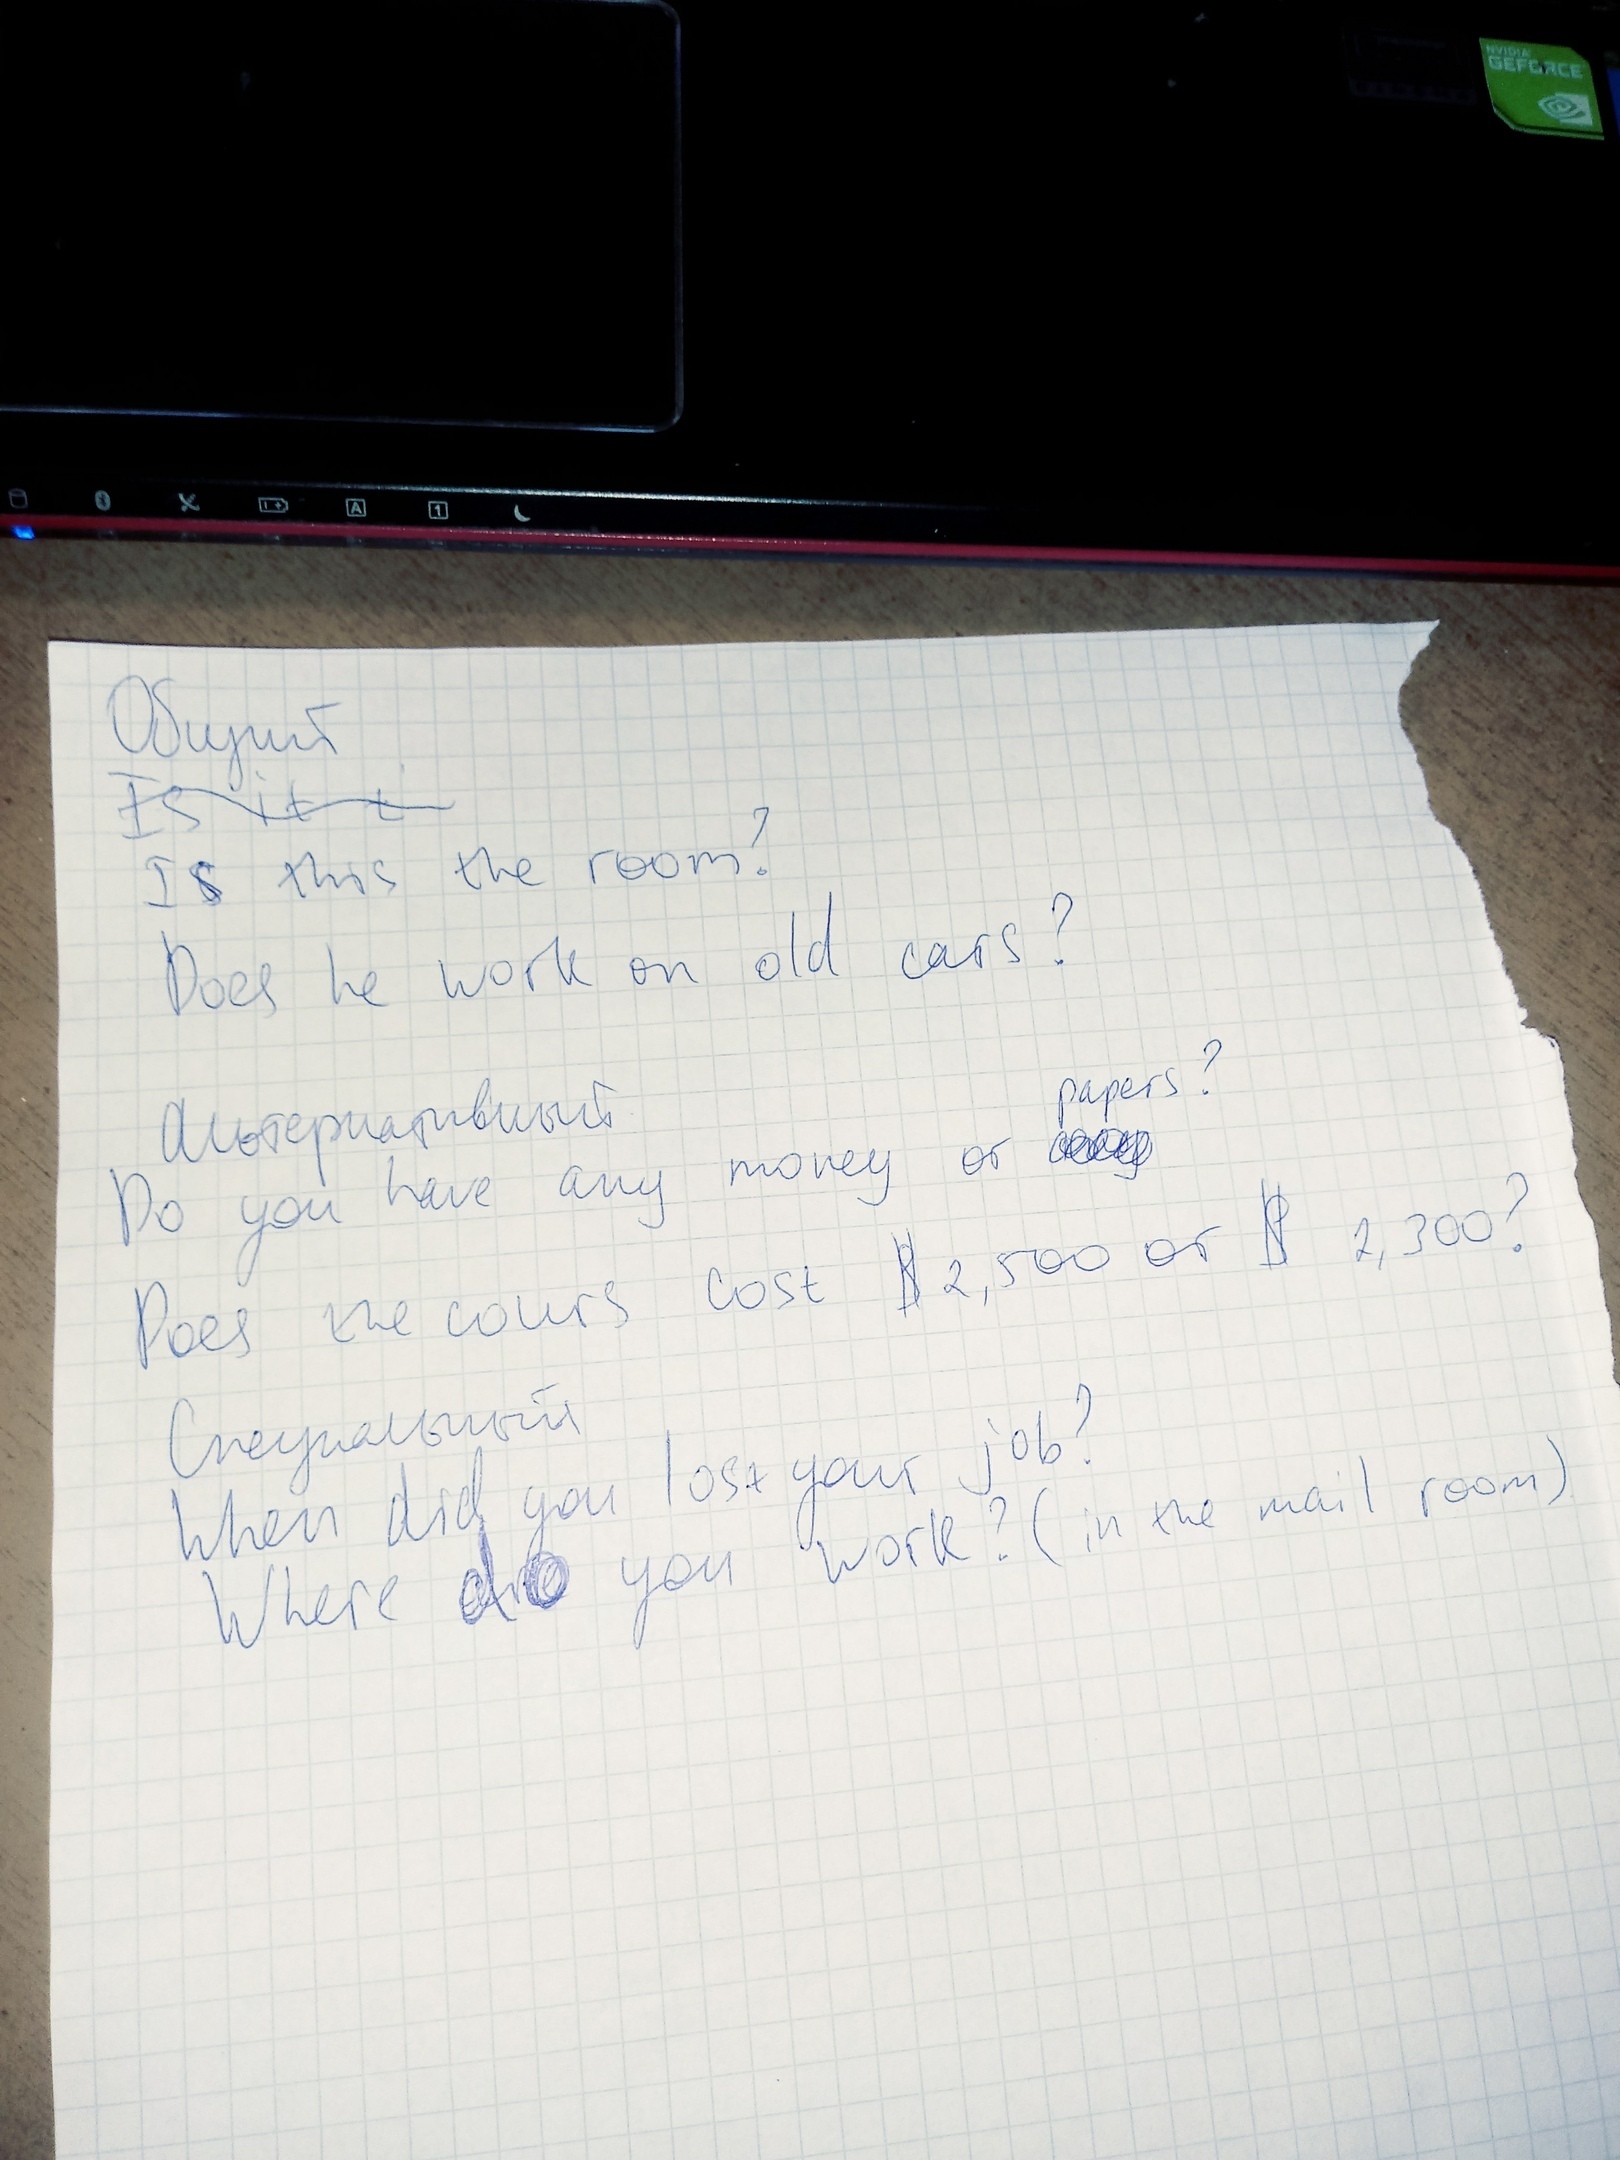 NVIDIA
GEFORCE
A
1
Общий
Is it t
Is this the room?
Does he work on old cars?
Альтернативный
papers?
Do you have any money or
Does the cours cost $2,500 or $ 2,300?
Специальный
When did you lost your job?
Where do you work? (in the mail room)